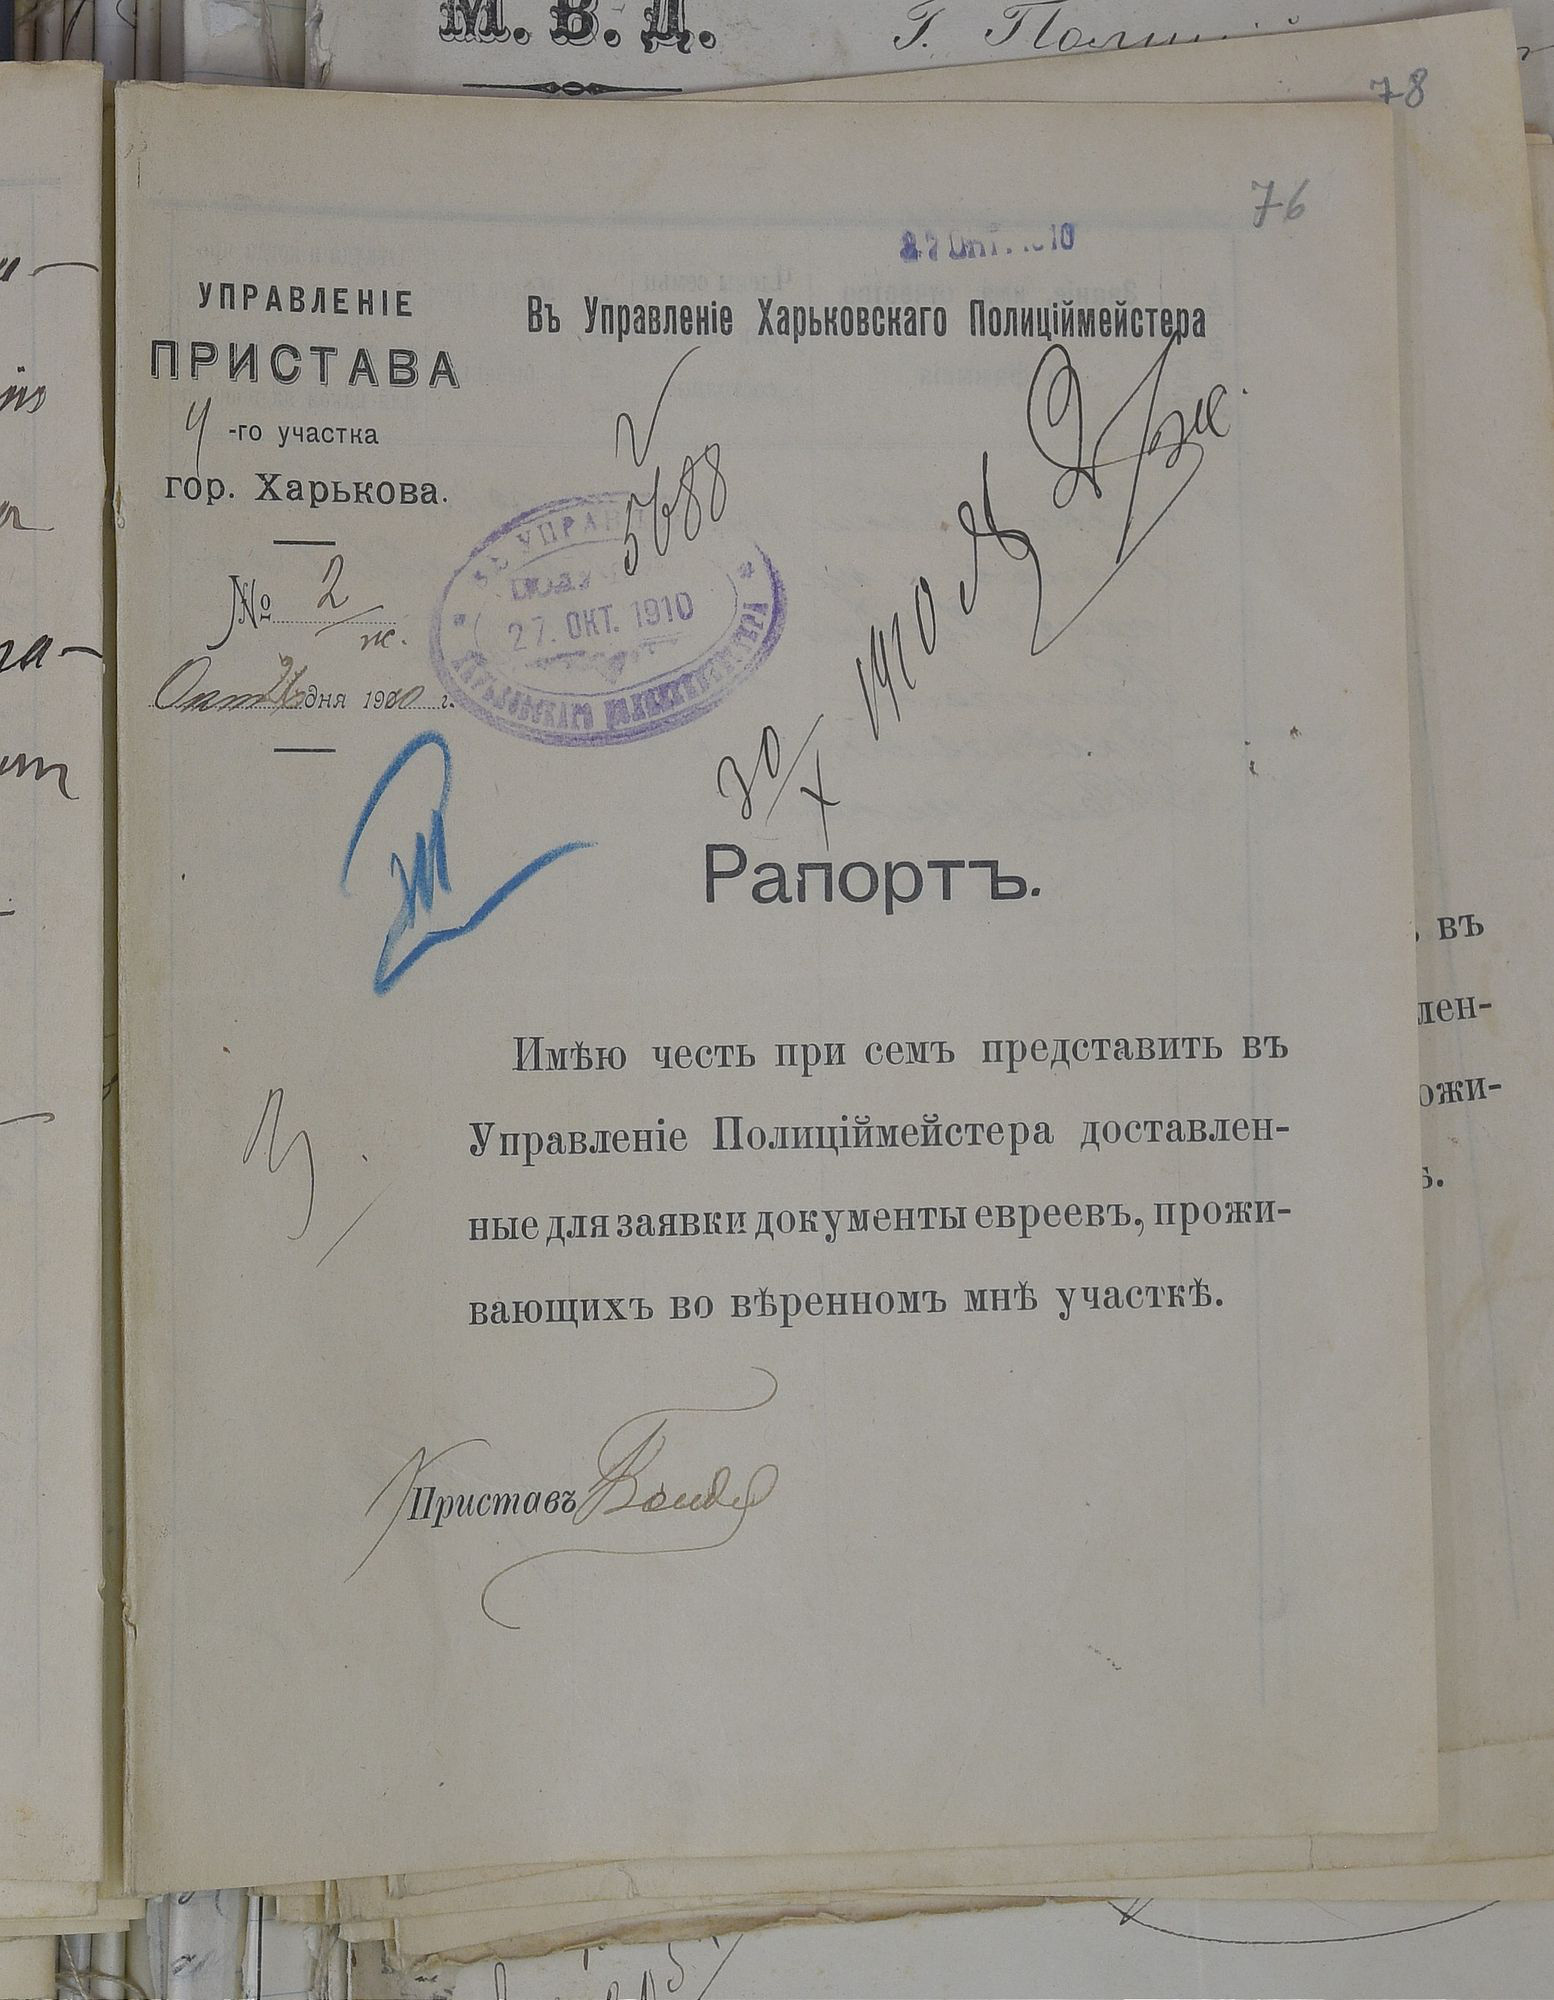 М. В. Д.
78
76
27 ОКТ. 1910
УПРАВЛЕНІЕ
ПРИСТАВА
4 -го участка
гор. Харькова.
№ 2/ж.
Окт 26 дня 1910 г.
Въ Управленіе Харьковскаго Полиціймейстера
5688
ВЪ УПРАВ
27. ОКТ. 1910
ХАРЬКОВСКАГО ПОЛИЦІЙМЕЙСТЕРА
30/X 1910
Рапортъ.
Имѣю честь при семъ представить въ
Управленіе Полиціймейстера доставлен-
ные для заявки документы евреевъ, прожи-
вающихъ во вѣренномъ мнѣ участкѣ.
Приставъ
въ
лен-
ожи-